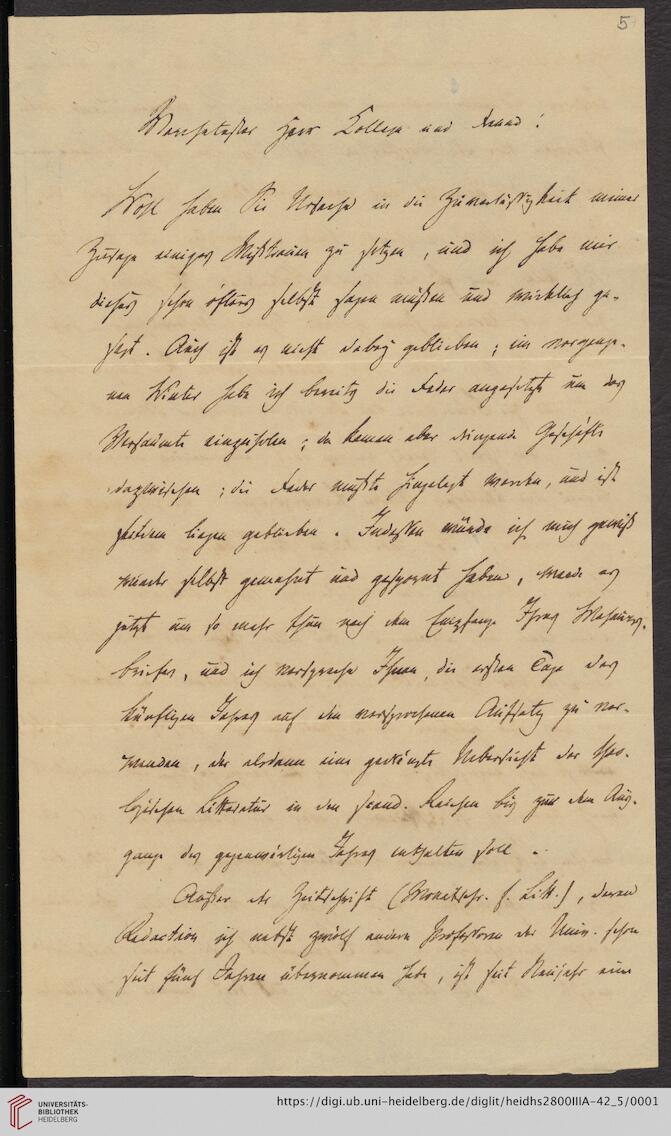 5
Verehrtester Herr College und Freund!
Wohl haben Sie Ursache in die Zuverlässigkeit meiner
Zusage einiges Mißtrauen zu setzen, und ich habe mir
dieses schon öfters selbst sagen müßen und wirklich ge-
sagt. Auch ist es nicht dabey geblieben; im vergange-
nen Winter habe ich bereits die Feder angesetzt um das
Versäumte einzuholen; da kamen aber dringende Geschäfte
dazwischen; die Feder mußte hingelegt werden, und ist
seitdem liegen geblieben. Indessen würde ich mich gewiß
wieder selbst gemahnt und gespornt haben, werde es
jetzt um so mehr thun nach dem Empfange Ihres Mahnungs-
briefes, und ich verspreche Ihnen, die ersten Tage des
künftigen Jahres auf den versprochenen Aufsatz zu ver-
wenden, der alsdann eine gedrängte Uebersicht der theo-
logischen Litteratur in den scand. Reichen bis zum Aus-
gange des gegenwärtigen Jahres enthalten soll.
Außer der Zeitschrift (Monatschr. f. Litt.), deren
Redaction ich nebst zwölf andern Professoren der Univ. schon
seit fünf Jahren übernommen habe, ist seit Neujahr eine
UNIVERSITÄTS-
BIBLIOTHEK
HEIDELBERG
https://digi.ub.uni-heidelberg.de/diglit/heidhs2800IIIA-42_5/0001